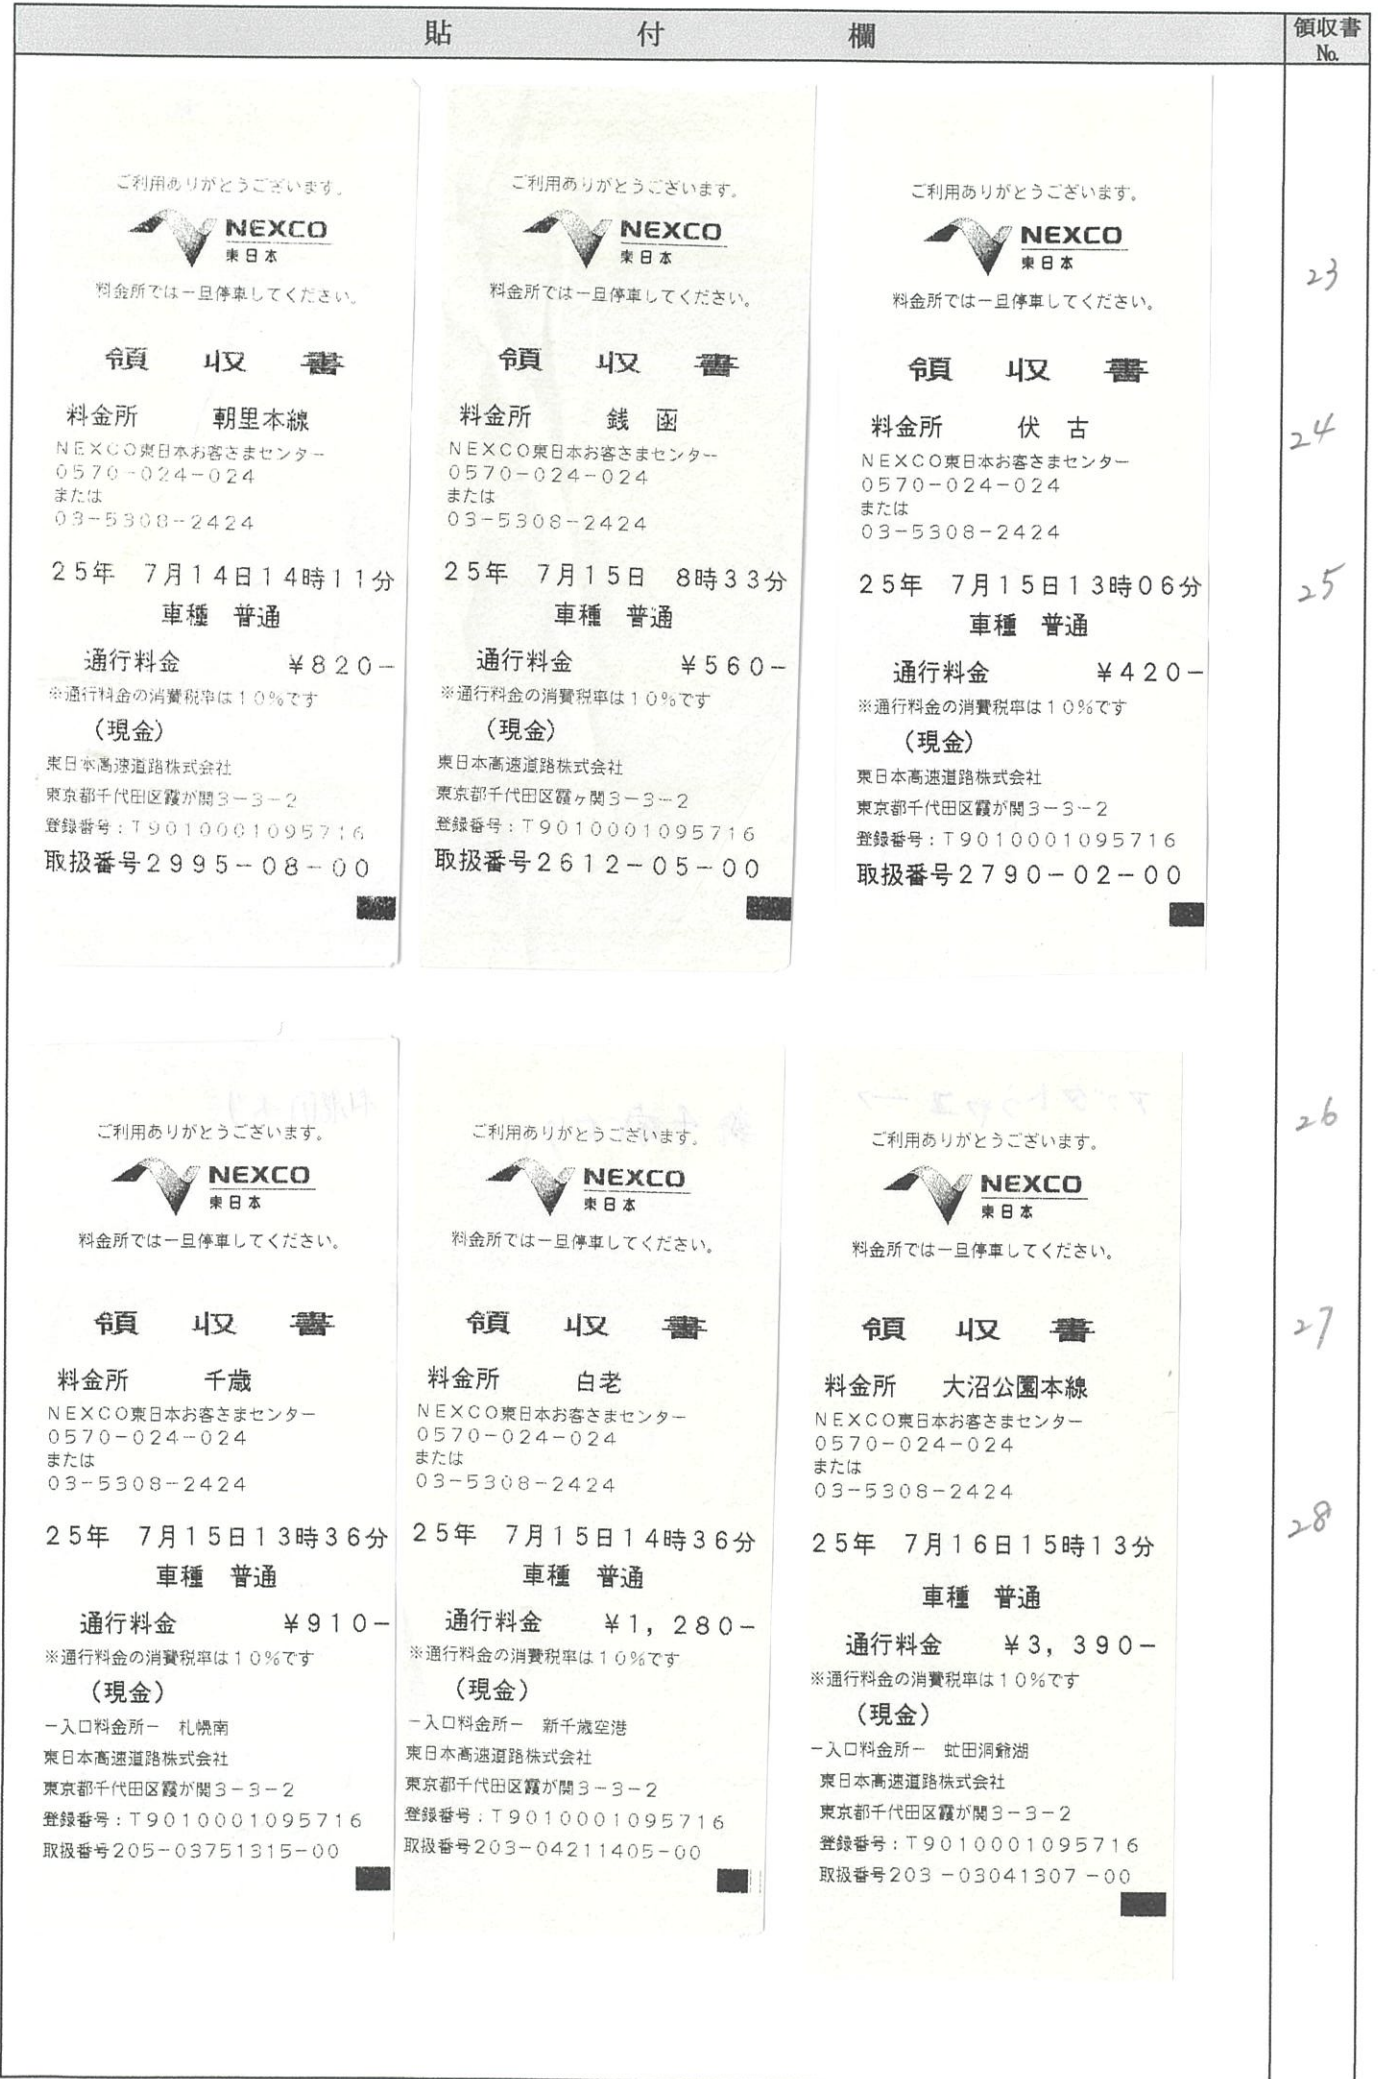 貼付欄
領収書
No.
ご利用ありがとうございます。
NEXCO
東日本
料金所では一旦停車してください。
領収書
料金所 朝里本線
NEXCO東日本お客さまセンター
0570-024-024
または
03-5308-2424
25年 7月14日14時11分
車種 普通
通行料金 ¥820-
※通行料金の消費税率は10%です
(現金)
東日本高速道路株式会社
東京都千代田区霞が関3-3-2
登録番号:T9010001095716
取扱番号2995-08-00
ご利用ありがとうございます。
NEXCO
東日本
料金所では一旦停車してください。
領収書
料金所 銭函
NEXCO東日本お客さまセンター
0570-024-024
または
03-5308-2424
25年 7月15日 8時33分
車種 普通
通行料金 ¥560-
※通行料金の消費税率は10%です
(現金)
東日本高速道路株式会社
東京都千代田区霞ヶ関3-3-2
登録番号:T9010001095716
取扱番号2612-05-00
ご利用ありがとうございます。
NEXCO
東日本
料金所では一旦停車してください。
領収書
料金所 伏古
NEXCO東日本お客さまセンター
0570-024-024
または
03-5308-2424
25年 7月15日13時06分
車種 普通
通行料金 ¥420-
※通行料金の消費税率は10%です
(現金)
東日本高速道路株式会社
東京都千代田区霞が関3-3-2
登録番号:T9010001095716
取扱番号2790-02-00
23
24
25
ご利用ありがとうございます。
NEXCO
東日本
料金所では一旦停車してください。
領収書
料金所 千歳
NEXCO東日本お客さまセンター
0570-024-024
または
03-5308-2424
25年 7月15日13時36分
車種 普通
通行料金 ¥910-
※通行料金の消費税率は10%です
(現金)
-入口料金所- 札幌南
東日本高速道路株式会社
東京都千代田区霞が関3-3-2
登録番号:T9010001095716
取扱番号205-03751315-00
ご利用ありがとうございます。
NEXCO
東日本
料金所では一旦停車してください。
領収書
料金所 白老
NEXCO東日本お客さまセンター
0570-024-024
または
03-5308-2424
25年 7月15日14時36分
車種 普通
通行料金 ¥1,280-
※通行料金の消費税率は10%です
(現金)
-入口料金所- 新千歳空港
東日本高速道路株式会社
東京都千代田区霞が関3-3-2
登録番号:T9010001095716
取扱番号203-04211405-00
ご利用ありがとうございます。
NEXCO
東日本
料金所では一旦停車してください。
領収書
料金所 大沼公園本線
NEXCO東日本お客さまセンター
0570-024-024
または
03-5308-2424
25年 7月16日15時13分
車種 普通
通行料金 ¥3,390-
※通行料金の消費税率は10%です
(現金)
-入口料金所- 虻田洞爺湖
東日本高速道路株式会社
東京都千代田区霞が関3-3-2
登録番号:T9010001095716
取扱番号203-03041307-00
26
27
28